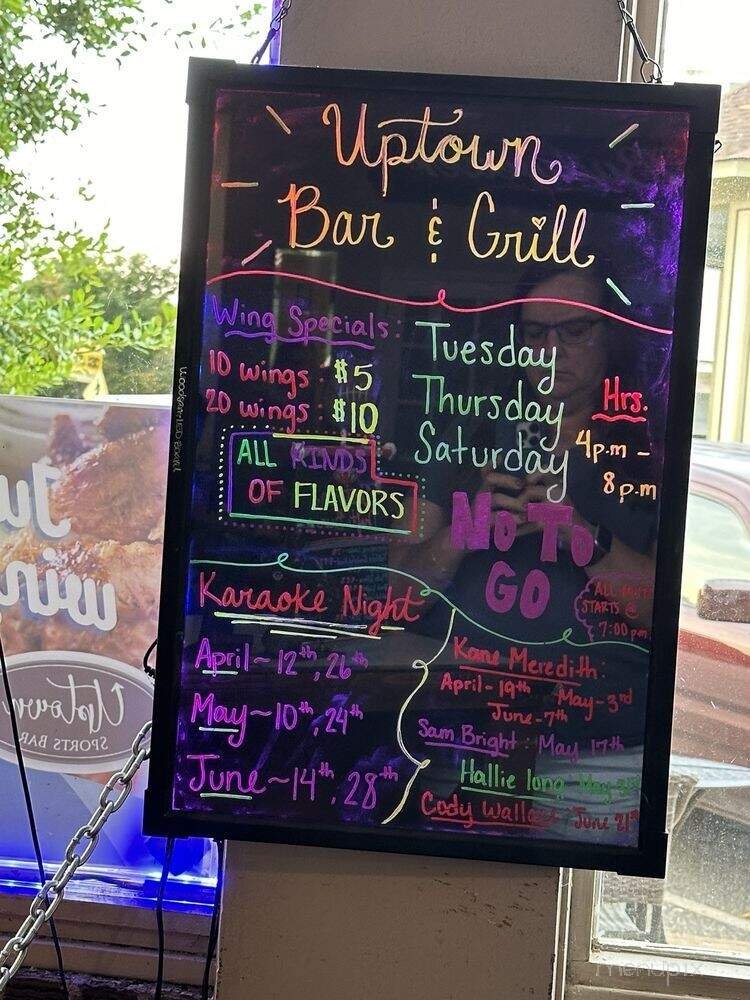 Uptown
Bar & Grill
Wing Specials:
10 wings: $5
20 wings: $10
ALL KINDS
OF FLAVORS
Tuesday
Thursday
Saturday
Hrs.
4p.m -
8p.m
NO TO
GO
Karaoke Night
April ~ 12th, 26th
May ~ 10th, 24th
June ~ 14th, 28th
ALL
STARTS @
7:00pm
Kane Meredith:
April - 19th May - 3rd
June - 7th
Sam Bright: May 17th
Hallie long May
Cody Wallace June 21st
Ju
win
Uptown
SPORTS BAR
menupix